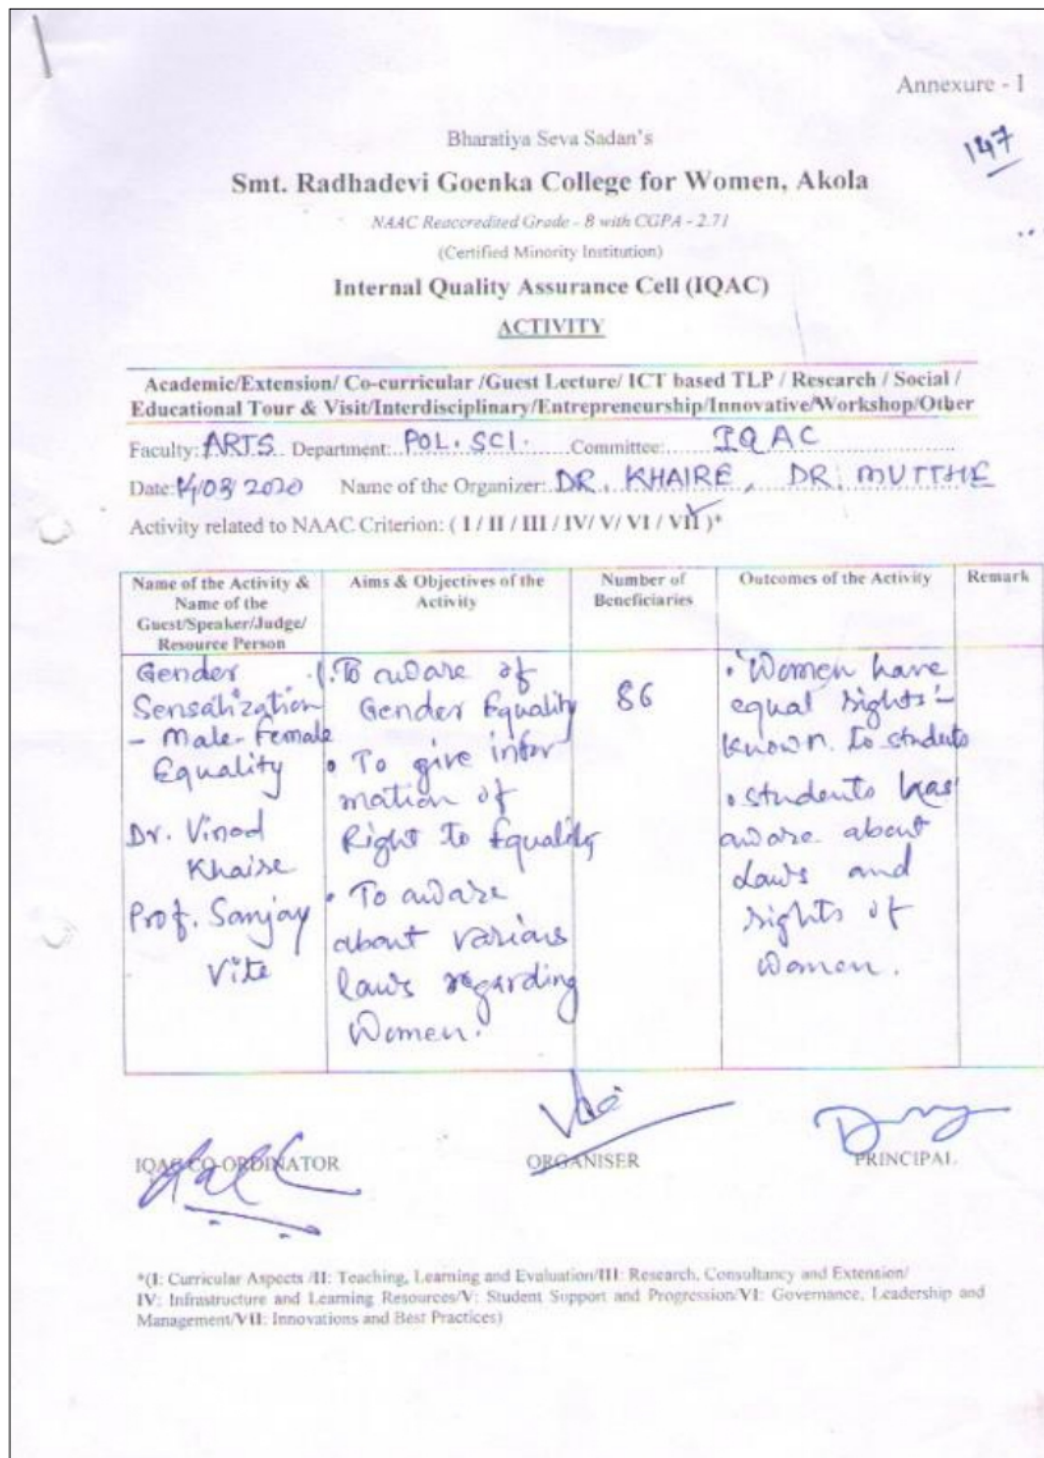 Annexure - I
147
Bharatiya Seva Sadan's
Smt. Radhadevi Goenka College for Women, Akola
NAAC Reaccredited Grade - B with CGPA - 2.71
(Certified Minority Institution)
Internal Quality Assurance Cell (IQAC)
ACTIVITY
Academic/Extension/ Co-curricular /Guest Lecture/ ICT based TLP / Research / Social /
Educational Tour & Visit/Interdisciplinary/Entrepreneurship/Innovative/Workshop/Other
Faculty: ARTS Department: POL. SCI. Committee: IQAC
Date: /03/2020 Name of the Organizer: DR. KHAIRE, DR. MUTTHE
Activity related to NAAC Criterion: ( I / II / III / IV/ V/ VI / VII )*
Name of the Activity &
Name of the
Guest/Speaker/Judge/
Resource Person
Aims & Objectives of the
Activity
Number of
Beneficiaries
Outcomes of the Activity
Remark
Gender
Sensatization
- Male-Female
Equality
Dr. Vinod
Khaire
Prof. Sanjay
Vite
• To aware of
Gender Equality
• To give infor
mation of
Right to Equality
• To aware
about various
laws regarding
Women.
86
• 'Women have
equal rights'-
known to students
• students has
aware about
Laws and
rights of
Women.
IQAC CO-ORDINATOR
ORGANISER
PRINCIPAL
*(I: Curricular Aspects /II: Teaching, Learning and Evaluation/III: Research, Consultancy and Extension/
IV: Infrastructure and Learning Resources/V: Student Support and Progression/VI: Governance, Leadership and
Management/VII: Innovations and Best Practices)